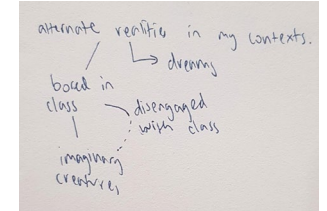 alternate realities in my contexts.
dreams
bored in
class
disengaged
with class
imaginary
creatures